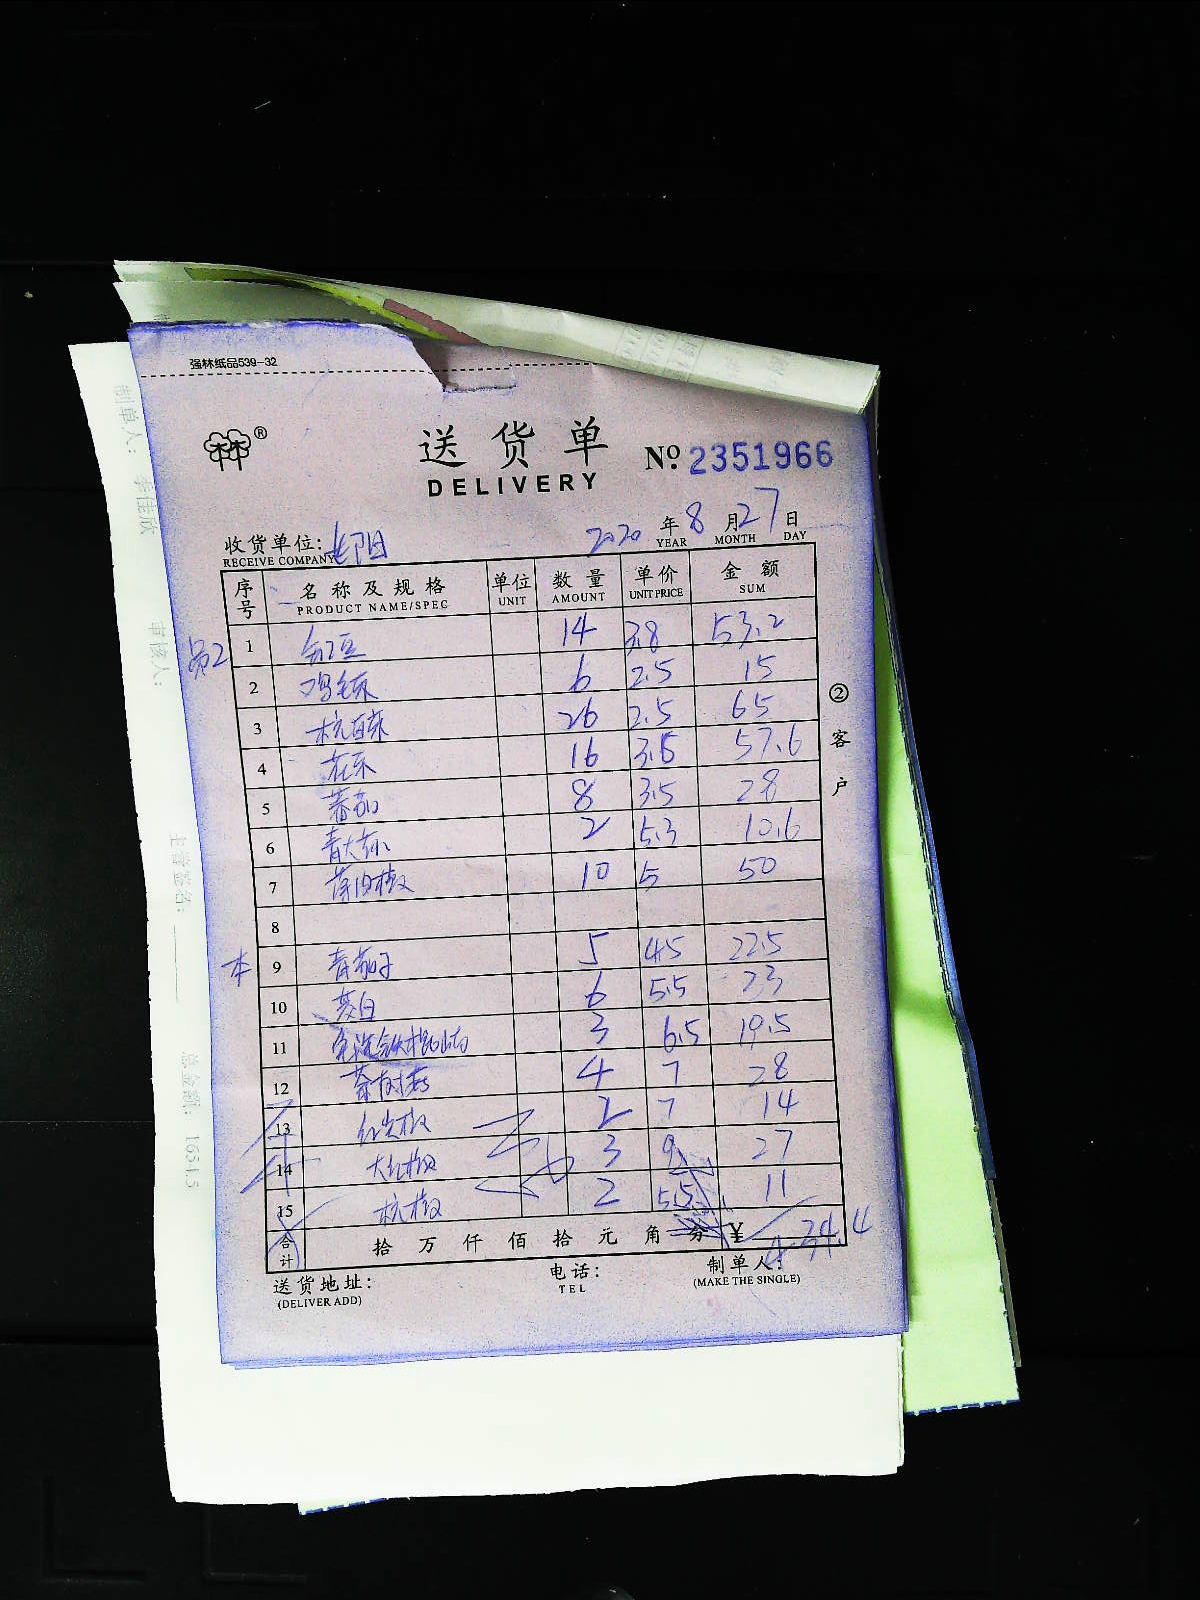 强林纸品539-32
®
送货单 No. 2351966
DELIVERY
收货单位: 2020 年 8 月 27 日
RECEIVE COMPANY YEAR MONTH DAY
序号 名称及规格 单位 数量 单价 金额
PRODUCT NAME/SPEC UNIT AMOUNT UNIT PRICE SUM
1 14 3.8 53.2
2 鸡毛菜 6 2.5 15
3 杭白菜 26 2.5 65
4 花菜 16 3.6 57.6
5 番茄 8 3.5 28
6 2 5.3 10.6
7 10 5 50
8
本 9 青茄子 5 4.5 22.5
10 茭白 6 5.5 23
11 3 6.5 19.5
12 茶树菇 4 7 28
13 红尖椒 2 7 14
14 大红椒 3 9 27
15 杭椒 2 5.5 11
合计 拾 万 仟 佰 拾 元 角 分 ¥
送货地址: 电话: 制单人:
(DELIVER ADD) TEL (MAKE THE SINGLE)
② 客户
制单人: 李佳欣
审核人:
主管签名:
总金额: 1651.5